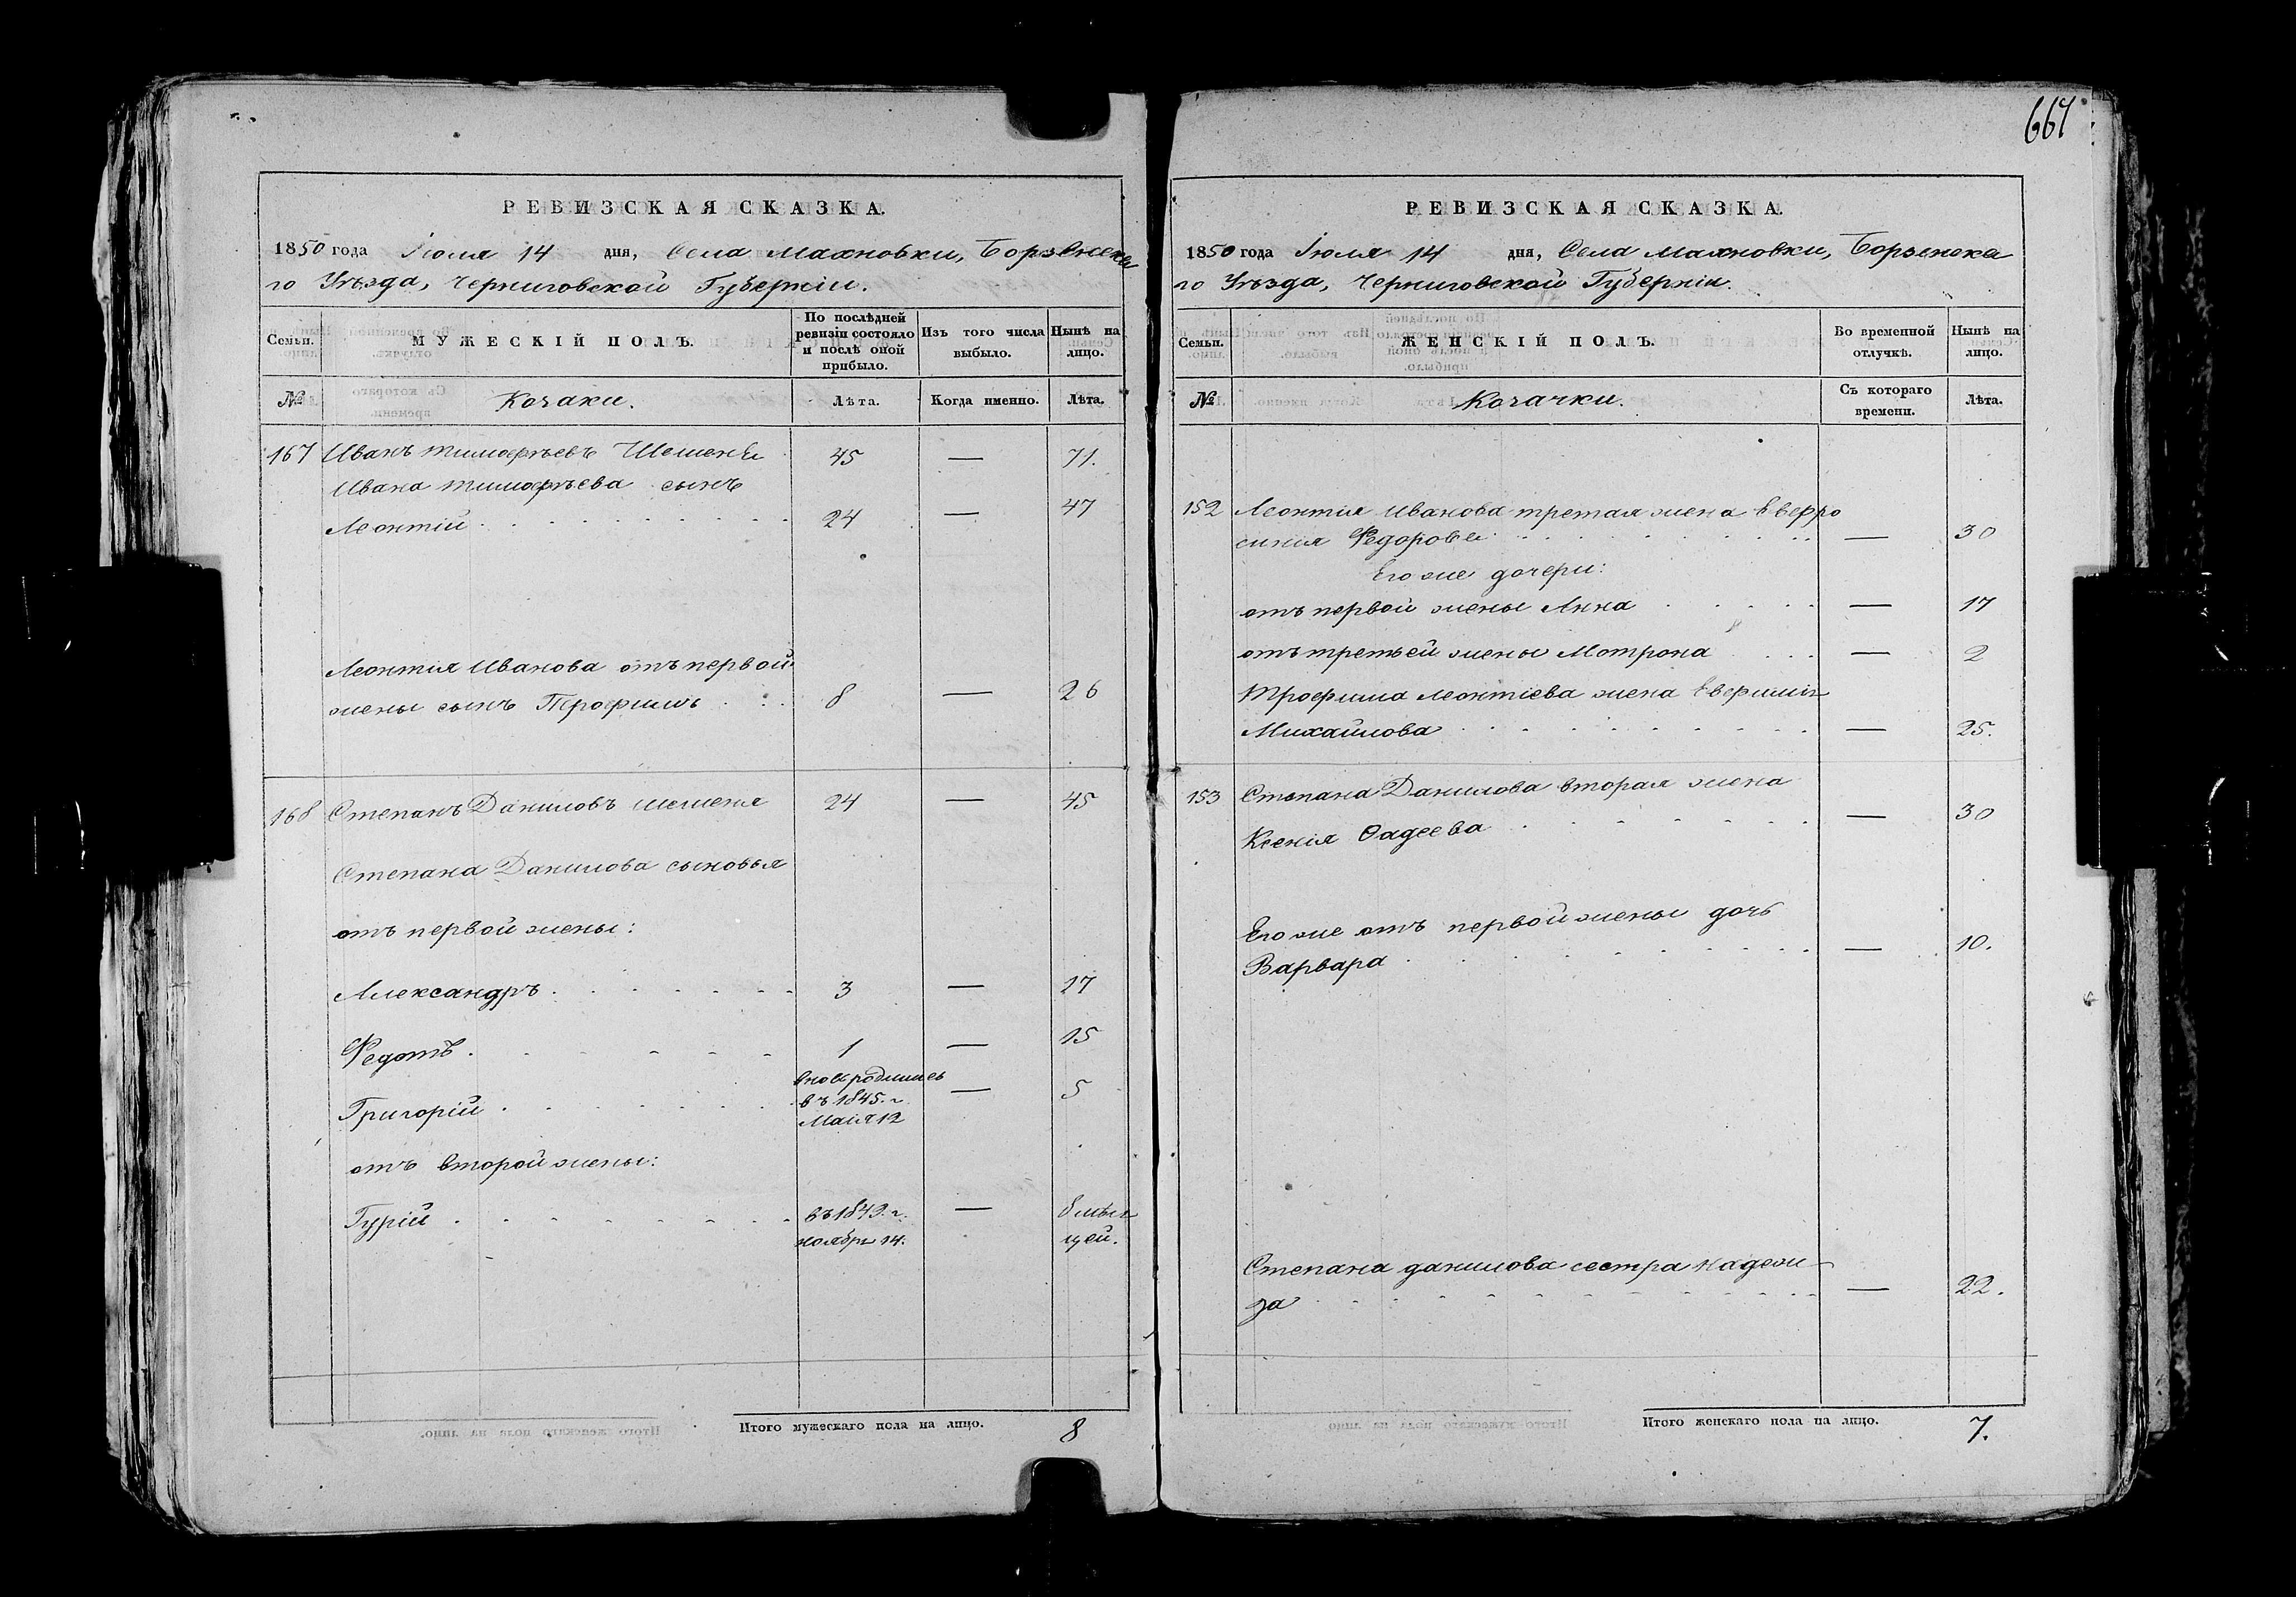 667
РЕВИЗСКАЯ СКАЗКА.
1850 года Іюля 14 дня, Села Махновки, Борзенска
го Уѣзда, Черниговской Губерніи.
Семьи.
МУЖЕСКІЙ ПОЛЪ.
По послѣдней
ревизіи состояло
и послѣ оной
прибыло.
Изъ того числа
выбыло.
Нынѣ на
лицо.
№
Козаки.
Лѣта.
Когда именно.
Лѣта.
167 Иванъ Тимофѣевъ 45 — 71.
Ивана Тимофѣева сынъ
Леонтій 24 — 47
Леонтія Иванова отъ первой
жены сынъ Трофимъ 8 — 26
168 Степанъ Даниловъ 24 — 45
Степана Данилова сыновья
отъ первой жены:
Александръ 3 — 17
Федотъ 1 — 15
Григорій вновь родился — 5
въ 1845. г.
Маія 12
отъ второй жены:
Гурій въ 1849. г. — 8 мѣся
ноября 14. цей.
Итого мужескаго пола на лицо. 8
РЕВИЗСКАЯ СКАЗКА.
1850 года Іюля 14 дня, Села Махновки, Борзенска
го Уѣзда, Черниговской Губерніи.
Семьи.
ЖЕНСКІЙ ПОЛЪ.
Во временной
отлучкѣ.
Нынѣ на
лицо.
№
Козачки.
Съ котораго
времени.
Лѣта.
152 Леонтія Иванова третая жена Евфро
синія Федорова — 30
Его же дочери:
отъ первой жены Анна — 17
отъ третьей жены Мотрона — 2
Трофима Леонтіева жена
Михайлова — 25.
153 Степана Данилова вторая жена
Ксенія Фадеева — 30
Его же отъ первой жены дочь
Варвара — 10.
Степана Данилова сестра Надеж
да — 22.
Итого женскаго пола на лицо. 7.